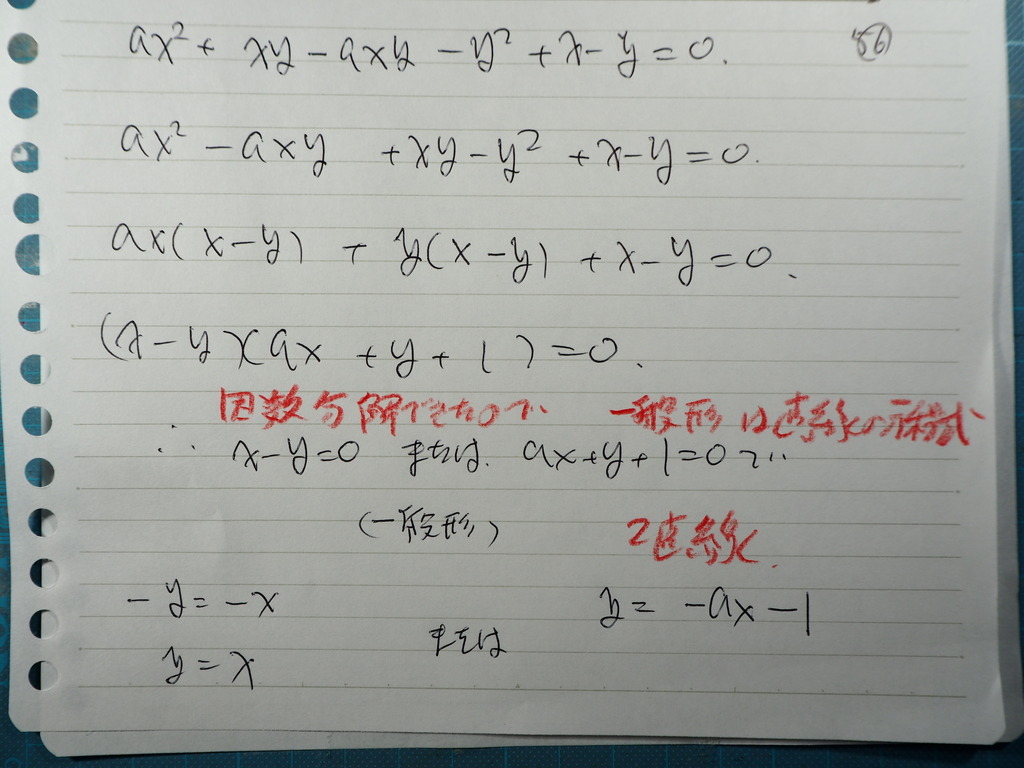 ax² + xy - axy - y² + x - y = 0. 86
ax² - axy + xy - y² + x - y = 0.
ax(x - y) + y(x - y) + x - y = 0.
(x - y)(ax + y + 1) = 0.
因数分解できたので 一般形は直線の方程式
∴ x - y = 0 または ax + y + 1 = 0 で
(一般形) 2直線.
-y = -x y = -ax - 1
または
y = x